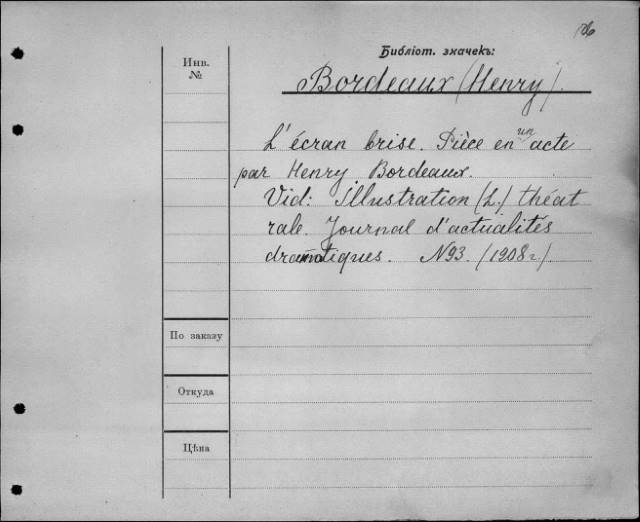 Библіот. значекъ:
Инв.
№
Bordeaux (Henry).
L'écran brisé. Pièce en un acte
par Henry Bordeaux.
Vid: Illustration (L.) théat
rale. Journal d'actualités
dramatiques. N93. (1908г.)
По заказу
Откуда
Цѣна